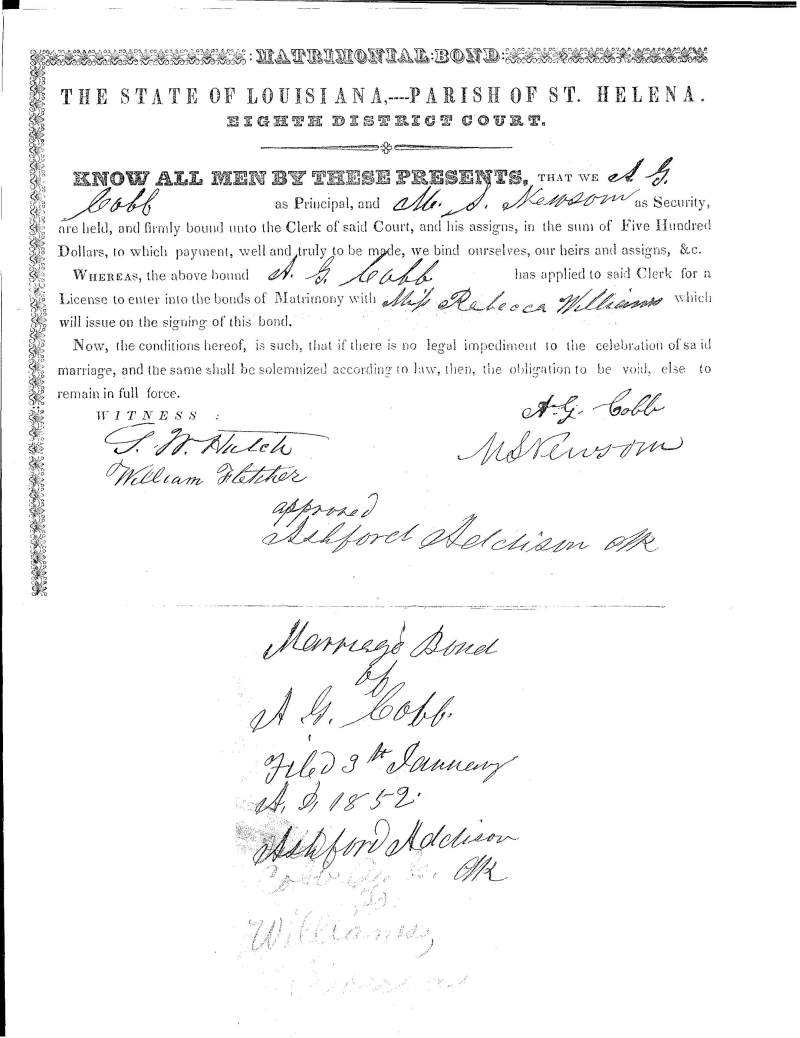 MATRIMONIAL BOND
THE STATE OF LOUISIANA,---PARISH OF ST. HELENA.
EIGHTH DISTRICT COURT.
KNOW ALL MEN BY THESE PRESENTS, THAT WE A. G.
Cobb as Principal, and M. S. Newsom as Security,
are held, and firmly bound unto the Clerk of said Court, and his assigns, in the sum of Five Hundred
Dollars, to which payment, well and truly to be made, we bind ourselves, our heirs and assigns, &c.
WHEREAS, the above bound A. G. Cobb has applied to said Clerk for a
License to enter into the bonds of Matrimony with Miss Rebecca Williams which
will issue on the signing of this bond.
Now, the conditions hereof, is such, that if there is no legal impediment to the celebration of said
marriage, and the same shall be solemnized according to law, then, the obligation to be void, else to
remain in full force.
WITNESS :
A. G. Cobb
M S Newsom
William Fletcher
approved
Ashford Addison Clk
Marriage Bond
of
A G. Cobb.
Filed 3th January
A. D. 1852.
Ashford Addison
Clk
Cobb
To
Williams,